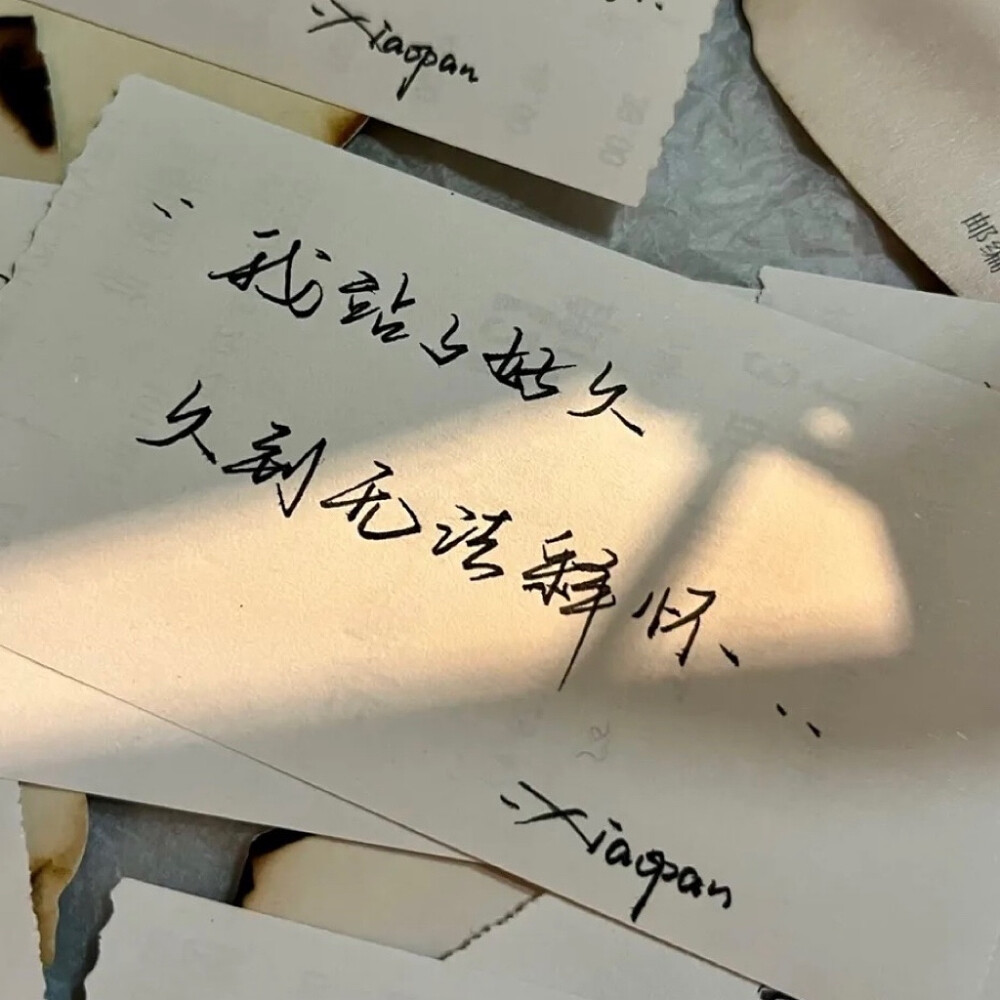 Xiaopan
邮编
"我站了好久
久到无法释怀、"
Xiaopan